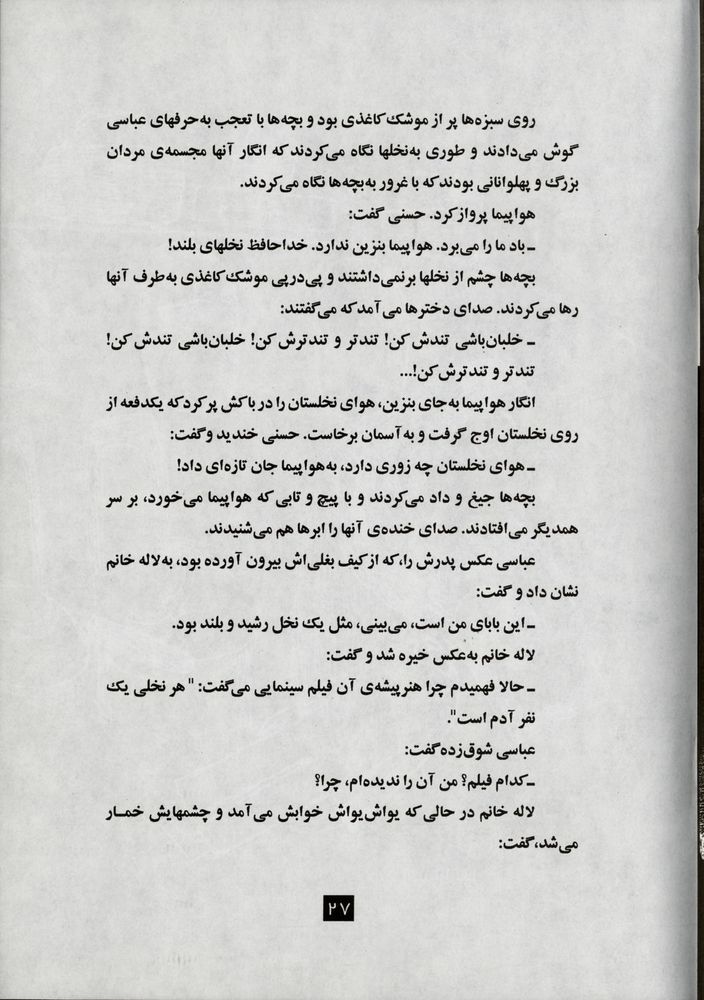 روی سبزه‌ها پر از موشک کاغذی بود و بچه‌ها با تعجب به‌حرفهای عباسی
گوش می‌دادند و طوری به‌نخلها نگاه می‌کردند که انگار آنها مجسمه‌ی مردان
بزرگ و پهلوانانی بودند که با غرور به‌بچه‌ها نگاه می‌کردند.
هواپیما پرواز کرد. حسنی گفت:
ـ باد ما را می‌برد. هواپیما بنزین ندارد. خداحافظ نخلهای بلند!
بچه‌ها چشم از نخلها برنمی‌داشتند و پی‌درپی موشک کاغذی به‌طرف آنها
رها می‌کردند. صدای دخترها می‌آمد که می‌گفتند:
ـ خلبان‌باشی تندش کن! تندتر و تندترش کن! خلبان‌باشی تندش کن!
تندتر و تندترش کن!...
انگار هواپیما به‌جای بنزین، هوای نخلستان را در باکش پر کرد که یکدفعه از
روی نخلستان اوج گرفت و به آسمان برخاست. حسنی خندید و گفت:
ـ هوای نخلستان چه زوری دارد، به‌هواپیما جان تازه‌ای داد!
بچه‌ها جیغ و داد می‌کردند و با پیچ و تابی که هواپیما می‌خورد، بر سر
همدیگر می‌افتادند. صدای خنده‌ی آنها را ابرها هم می‌شنیدند.
عباسی عکس پدرش را، که از کیف بغلی‌اش بیرون آورده بود، به‌لاله خانم
نشان داد و گفت:
ـ این بابای من است، می‌بینی، مثل یک نخل رشید و بلند بود.
لاله خانم به‌عکس خیره شد و گفت:
ـ حالا فهمیدم چرا هنرپیشه‌ی آن فیلم سینمایی می‌گفت: "هر نخلی یک
نفر آدم است".
عباسی شوق‌زده گفت:
ـ کدام فیلم؟ من آن را ندیده‌ام، چرا؟
لاله خانم در حالی که یواش‌یواش خوابش می‌آمد و چشمهایش خمـار
می‌شد، گفت:
۲۷